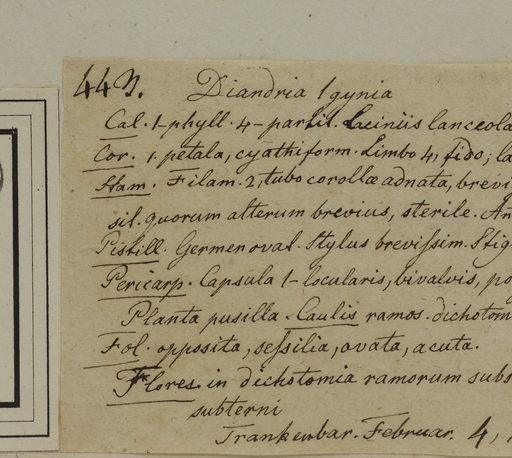 44 B. Diandria 1gynia
Cal. 1-phyll. 4-partit. Laciniis lanceola
Cor. 1. petala, cyathiform. Limbo 4, fido; la
Stam. Filam. 2, tubo corollæ adnata, brevi
sil. quorum alterum brevius, sterile. An
Pistill. Germen oval. Stylus brevissim. Stig
Pericarp. Capsula 1-locularis, bivalvis, po
Planta pusilla. Caulis ramos. dichotom
Fol. opposita, sessilia, ovata, acuta.
Flores in dichotomia ramorum subs
subterni
Trankenbar. Februar. 4, 1